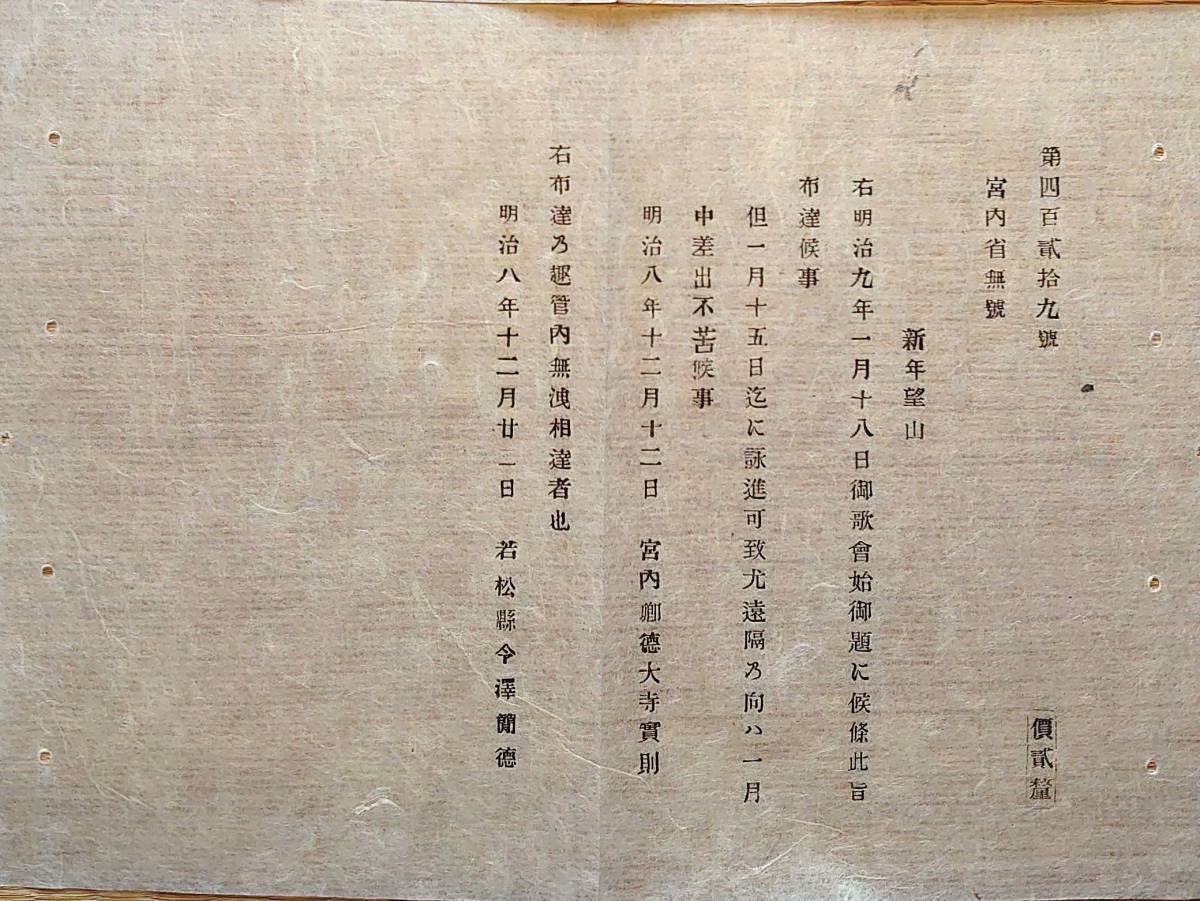 第四百貳拾九號
價貳釐
宮內省無號
新年望山
右明治九年一月十八日御歌會始御題に候條此旨
布達候事
但一月十五日迄に詠進可致尤遠隔乃向ハ一月
中差出不苦候事
明治八年十二月十二日 宮內卿德大寺實則
右布達乃趣管內無洩相達者也
明治八年十二月廿二日 若松縣令澤簡德